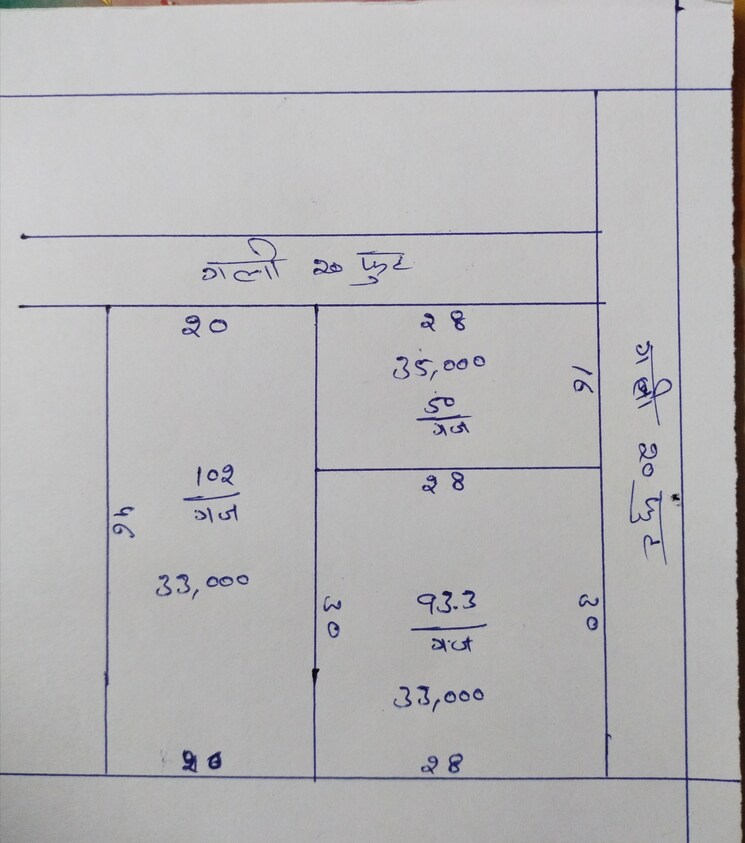 गली 20 फुट
20
28
35,000
16
50
गज
गली 20 फुट
28
102
गज
46
33,000
30
93.3
गज
30
33,000
20
28